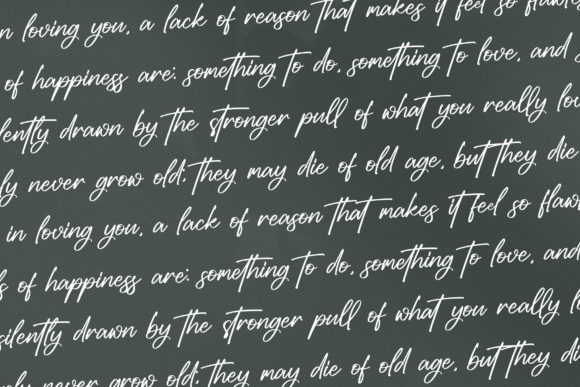 in loving you, a lack of reason that makes it feel so flawl
of happiness are: something to do, something to love, and s
ilently drawn by the stronger pull of what you really lov
ly never grow old; they may die of old age, but they die
in loving you, a lack of reason that makes it feel so flaw
ls of happiness are: something to do, something to love, and
silently drawn by the stronger pull of what you really lo
ly never grow old; they may die of old age, but they di